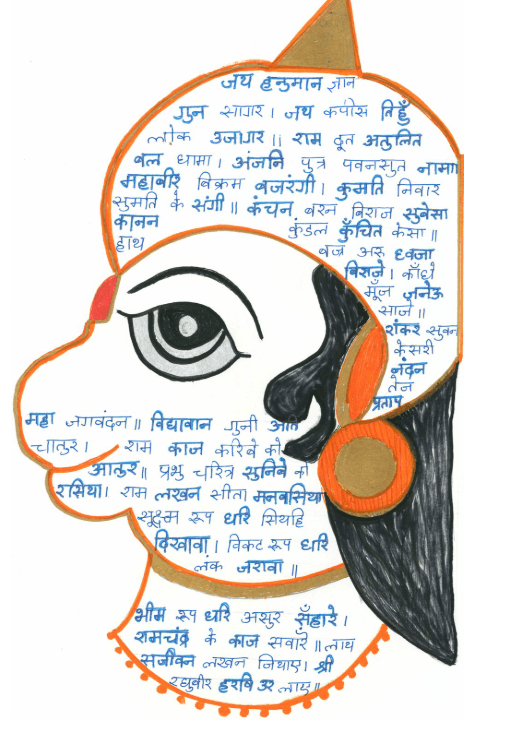 जय हनुमान ज्ञान
गुन सागर। जय कपीस तिहुँ
लोक उजागर॥ राम दूत अतुलित
बल धामा। अंजनि पुत्र पवनसुत नामा
महाबीर बिक्रम बजरंगी। कुमति निवार
सुमति के संगी॥ कंचन बरन बिराज सुबेसा
कानन कुंडल कुँचित केसा॥
हाथ बज्र अरु ध्वजा
बिराजे। काँधे
मूँज जनेऊ
साजे॥
शंकर सुवन
केसरी
नंदन
तेज
प्रताप
महा जगवंदन॥ विद्यावान गुनी अति
चातुर। राम काज करिबे को
आतुर॥ प्रभु चरित्र सुनिबे को
रसिया। राम लखन सीता मनबसिया
सूक्ष्म रूप धरि सियहि
दिखावा। विकट रूप धरि
लंक जरावा॥
भीम रूप धरि असुर सँहारे।
रामचंद्र के काज सवारे॥ लाय
सजीवन लखन जियाए। श्री
रघुबीर हरषि उर लाए॥